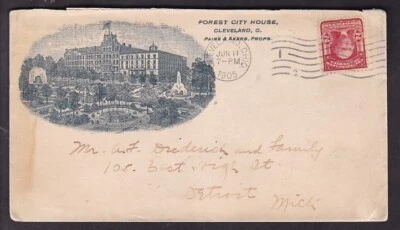 FOREST CITY HOUSE,
CLEVELAND, O.
PAINE & AKERS, PROPS.
JUN 11
7-PM
1905
1
2
Mr. A.F. Diederich and Family
108. East High St
Detroit
Mich